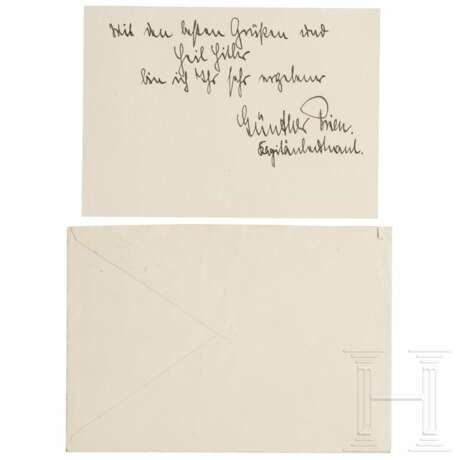 Mit den besten Grüßen und
Heil Hitler
bin ich Ihr sehr ergebener
Günther Prien.
Kapitänleutnant.